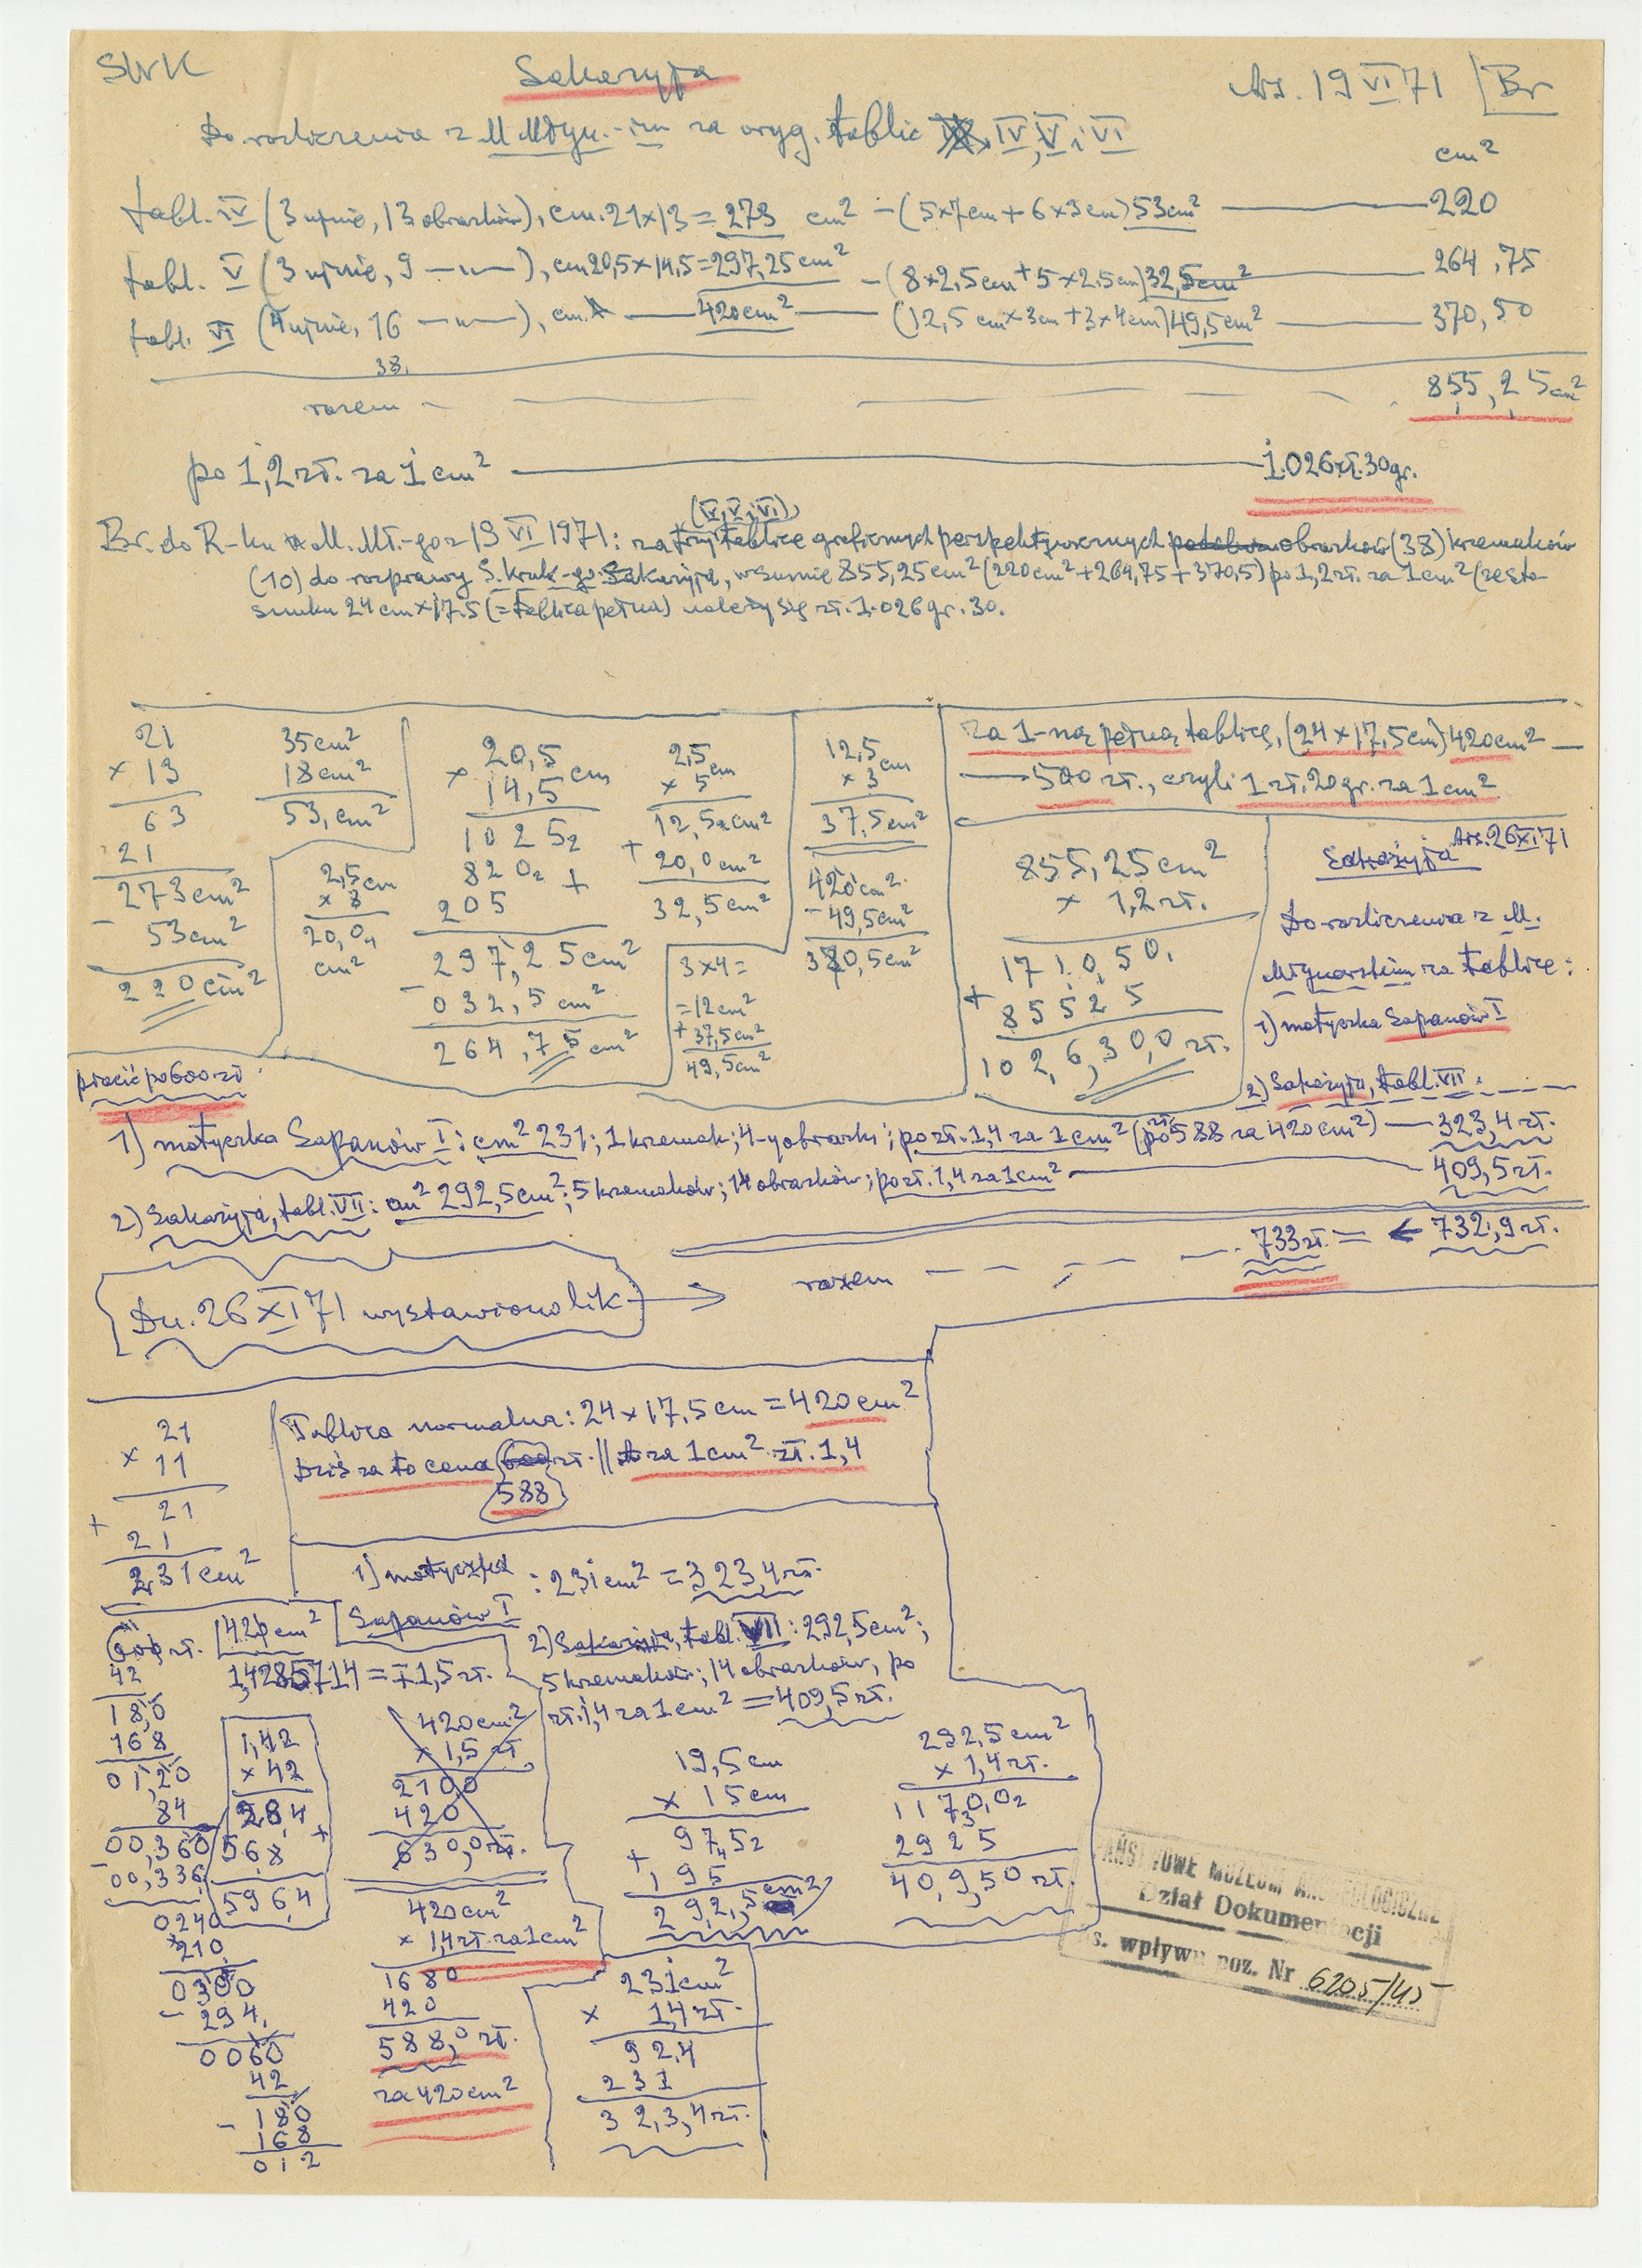 SKK
Sakaryja
Ars. 19 VI 71 | Br
Do rozliczenia z M Młyn.-im za oryg. tablic IV, V, i VI
cm²
tabl. IV (3 ujęcia, 13 obrazków), cm. 21x13 = 273 cm² - (5x7cm + 6x3cm) 53cm² — 220
tabl. V (3 ujęcia, 9 —"—), cm 20,5x14,5 = 297,25cm² - (8x2,5cm + 5x2,5cm) 32,5cm² — 264,75
tabl. VI (4 ujęcia, 16 —"—), cm. — 420cm² — (12,5 cm x 3cm + 3x4cm) 49,5cm² — 370,50
38.
razem - 855,25cm²
po 1,2 zł. za 1 cm² — 1.026 zł. 30 gr.
(IV, V, i VI)
Br. do R-ku M. Mł.-go z 19 VI 1971: za trzy tablice graficznych perspektywicznych podobno obrazków (38) krzemieków
(10) do rozprawy S. Kruk-go: Sakarzyja, w sumie 855,25cm² (220cm² + 264,75 + 370,5) po 1,2 zł. za 1 cm² (ze sto-
sunku 24 cm x 17.5 (= tablica pełna) należy się zł. 1.026 gr. 30.
21
x 13
63
21
273cm²
- 53cm²
220cm²
35cm²
18cm²
53,cm²
2,5cm
x 8
20,0
cm²
20,5
x 14,5 cm
1025
820 +
205
297,25cm²
- 032,5cm²
264,75cm²
2,5cm
x 5
12,5cm²
+ 20,0cm²
32,5cm²
3x4=
=12cm²
+ 37,5cm²
49,5cm²
12,5cm
x 3
37,5cm²
420cm²
- 49,5cm²
370,5cm²
za 1-ną pełną tablicę, (24x17,5cm) 420cm² —
— 500 zł., czyli 1 zł. 20 gr. za 1 cm²
855,25cm²
x 1,2 zł.
171050
+ 85525
1026,300 zł.
Ars. 26 XI 71
Sakarzyja
Do rozliczenia z M.
Młynarskim za tablice:
1) motyczka Sapanów I
2) Sakarzyja, tabl. VII
płacić po 600 zł
1) motyczka Sapanów I: cm² 231; 1 krzemiek; 4-y obrazki; po zł. 1,4 za 1 cm² (po zł 588 za 420cm²) — 323,4 zł.
2) Sakarzyja, tabl. VII: cm² 292,5cm²; 5 krzemieków; 14 obrazków; po zł. 1,4 za 1 cm² — 409,5 zł.
Dn. 26 XI 71 wystawiono lik → razem — 733 zł. = ← 732,9 zł.
21
x 11
21
+ 21
231cm²
Tablica normalna: 24x17,5cm = 420cm²
Dziś za to cena 600 zł. // za 1 cm² zł. 1,4
588
1) motyczka : 231cm² = 323,4 zł.
Sapanów I
2) Sakarzyja, tabl. VII: 292,5cm²;
5 krzemieków; 14 obrazków, po
zł. 1,4 za 1 cm² = 409,5 zł.
600 zł. | 420cm²
42
1,4285714 = ∓1,5 zł.
180
168
0120
84
00,360
- 00,336
0240
210
0300
- 294
0060
42
180
- 168
012
1,42
x 42
284
568 +
5964
420cm²
x 1,5 zł
2100
420
630,0 zł.
420cm²
x 1,4 zł. za 1 cm²
1680
420
588,0 zł.
za 420cm²
19,5cm
x 15cm
975
+ 195
292,5cm²
292,5cm²
x 1,4 zł.
1170,0
2925
409,50 zł.
231cm²
x 1,4 zł.
924
231
323,4 zł.
PAŃSTWOWE MUZEUM ARCHEOLOGICZNE
Dział Dokumentacji
s. wpływu poz. Nr 6205/45